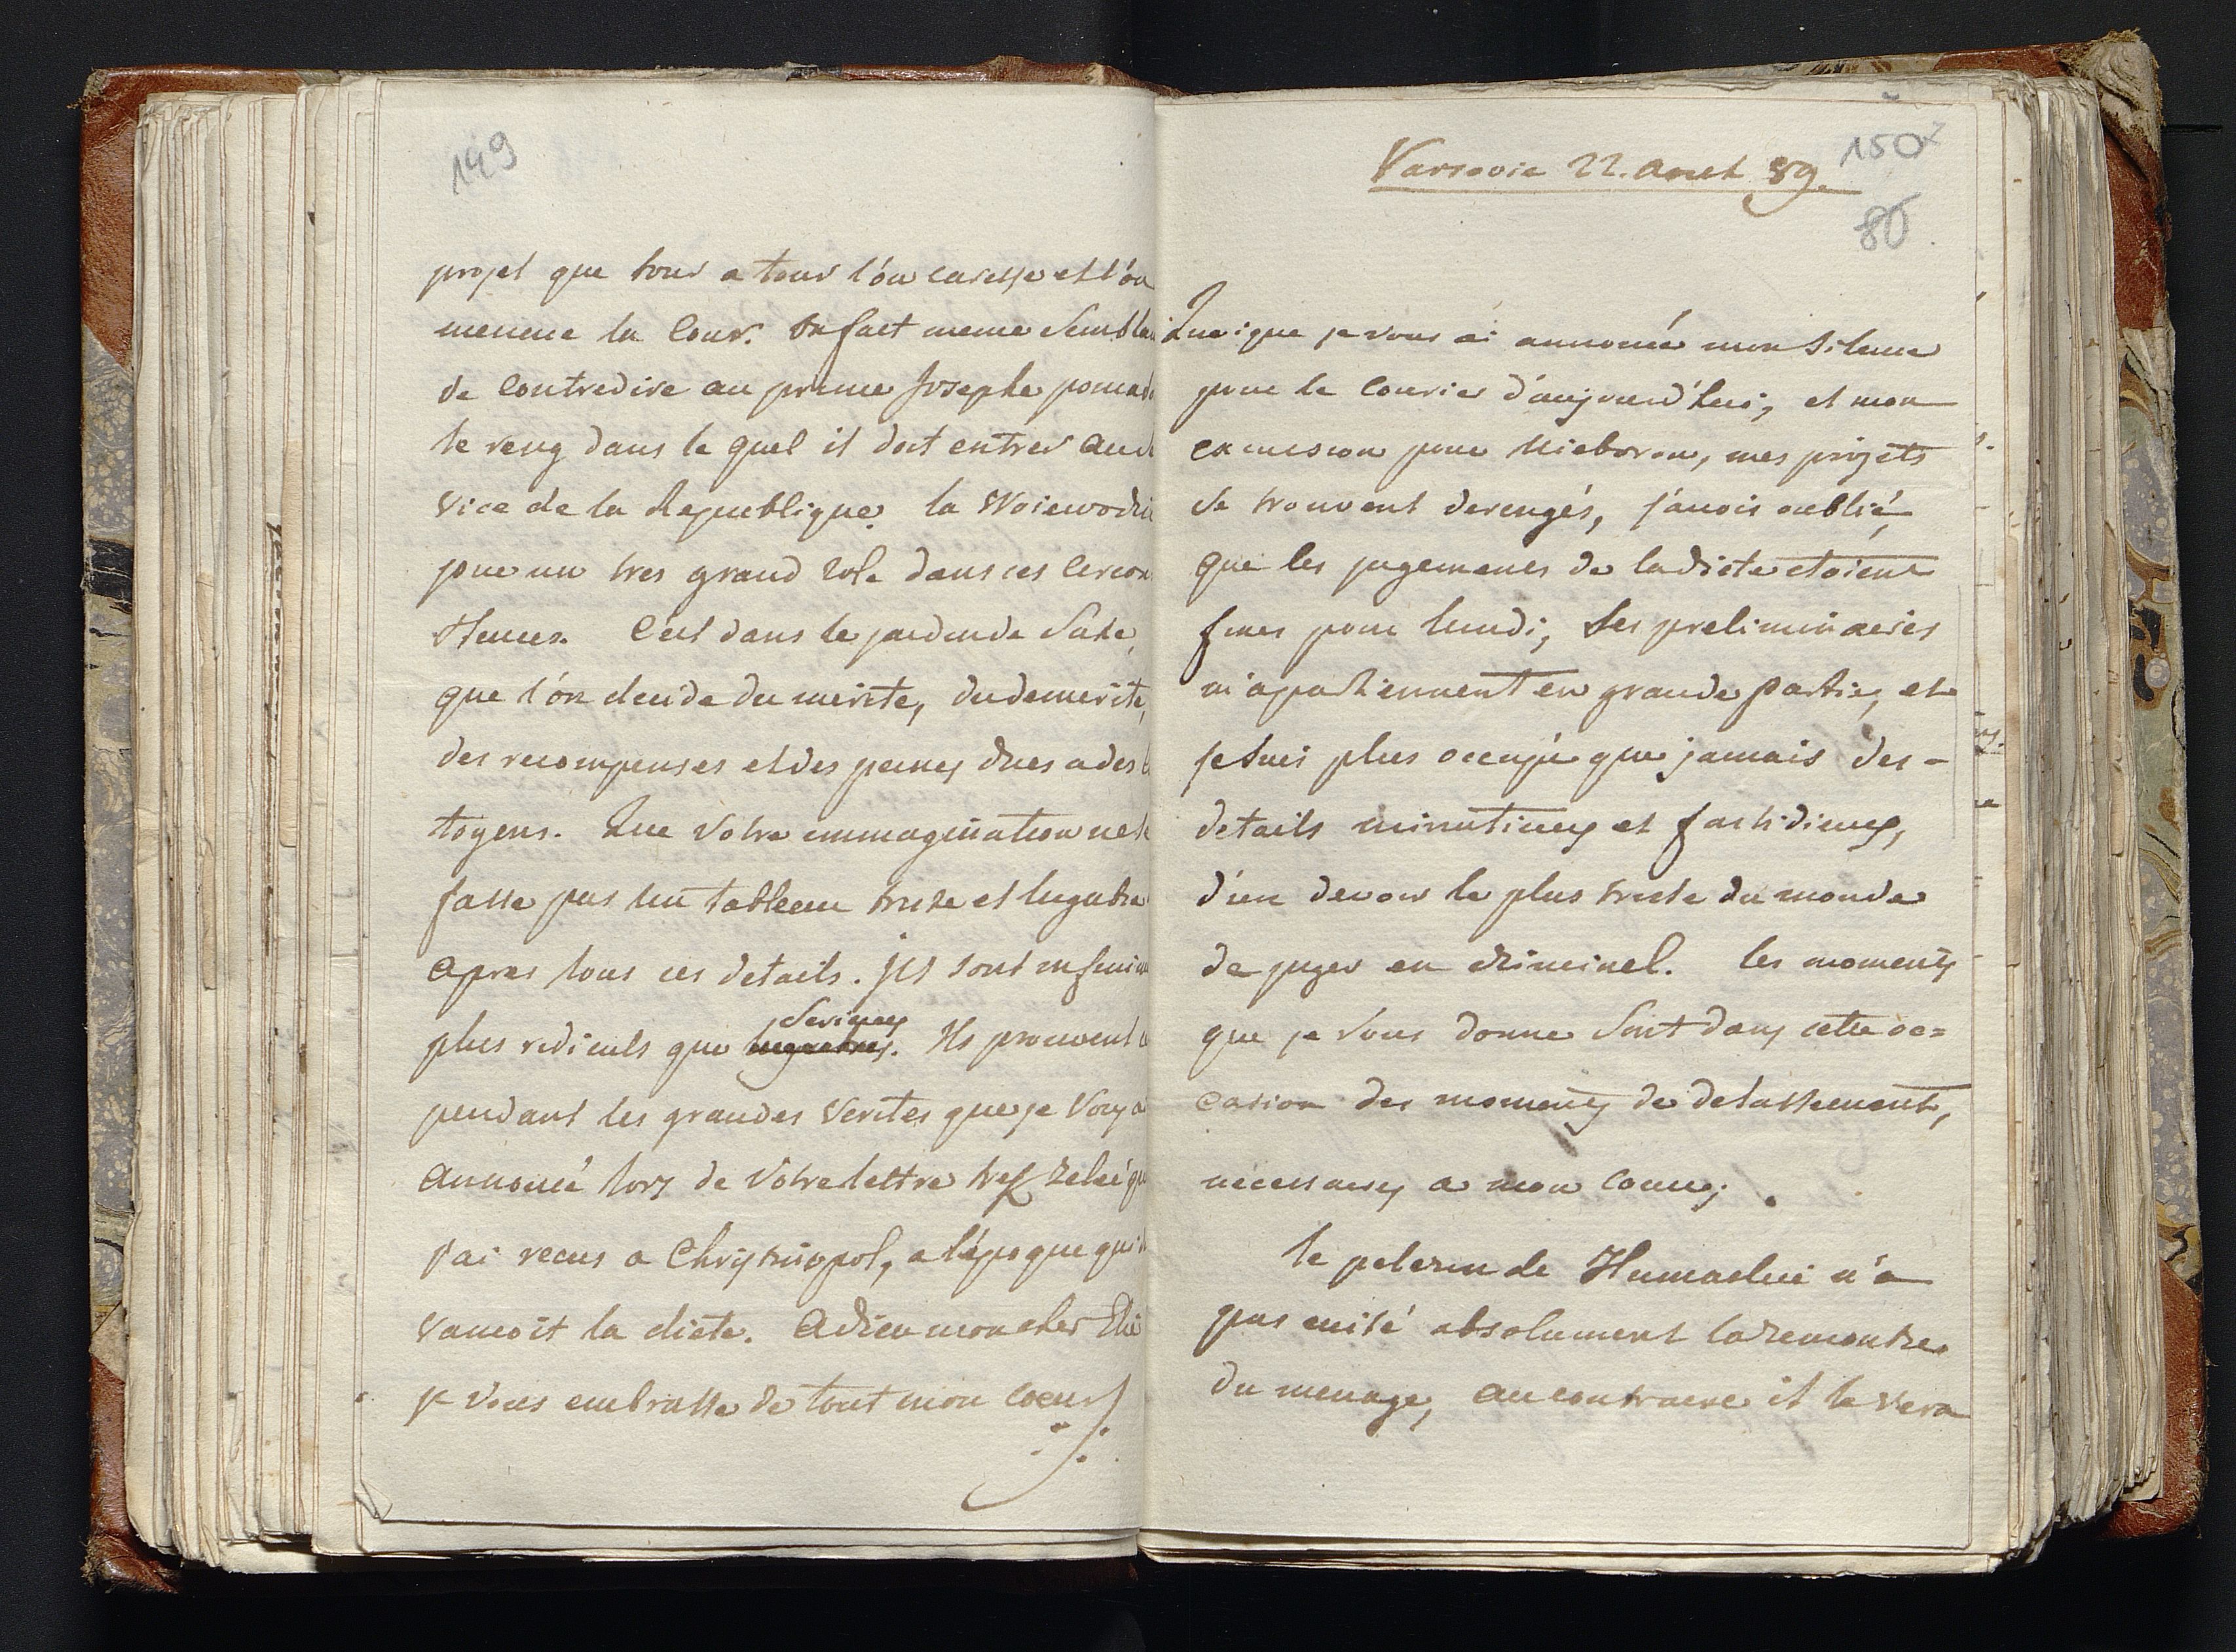 149
projet que tour a tour l'on caresse et l'on
menace la Cour. On fait meme Sembla
de Contredire au prince Josephe
le reng dans le quel il doit entrer au
vice de la Republique. la Woiewodi
joue un tres grand role dans ces Circon
stences. C'est dans le jardin de Saxe,
que l'on decide du merite, du demerite,
des recompenses et des peines dues a des
toyens. Que Votre immagination ne
fasse pas un tableau triste et lugubre
apres tous ces details. Ils sont infini
plus ridiculs que Serieux
lugubres. Ils prouvent
pendant les grandes Verites que je Vous a
annoncé lors de Votre lettre tres zelée
j'ai recus a Chrystinopol, a l'époque qui
vancoit la diete. Adieu mon cher
je vous embrasse de tout mon Coeur
150
Varsovie 22. Aout 89.
80
Quoique je vous ai annoncé mon Silence
pour le Courier d'aujourd'hui, et mon
excursion pour Nieborow, mes projets
Se trouvent derengés, j'avois oublié
que les jugements de la diete etoient
fixés pour lundi, Les preliminaires
m'apartiennent en grande partie, et
je Suis plus occupé que jamais des-
details minutieux et fastidieux,
d'un devoir le plus triste du monde
de juger en criminel. les moments
que je Vous donne Sont dans cette oc=
casion des moments de delassement,
necessaires a mon Coeur;
le pelerin de n'a
pas evité absolument la
du menage, au contraire il le vera